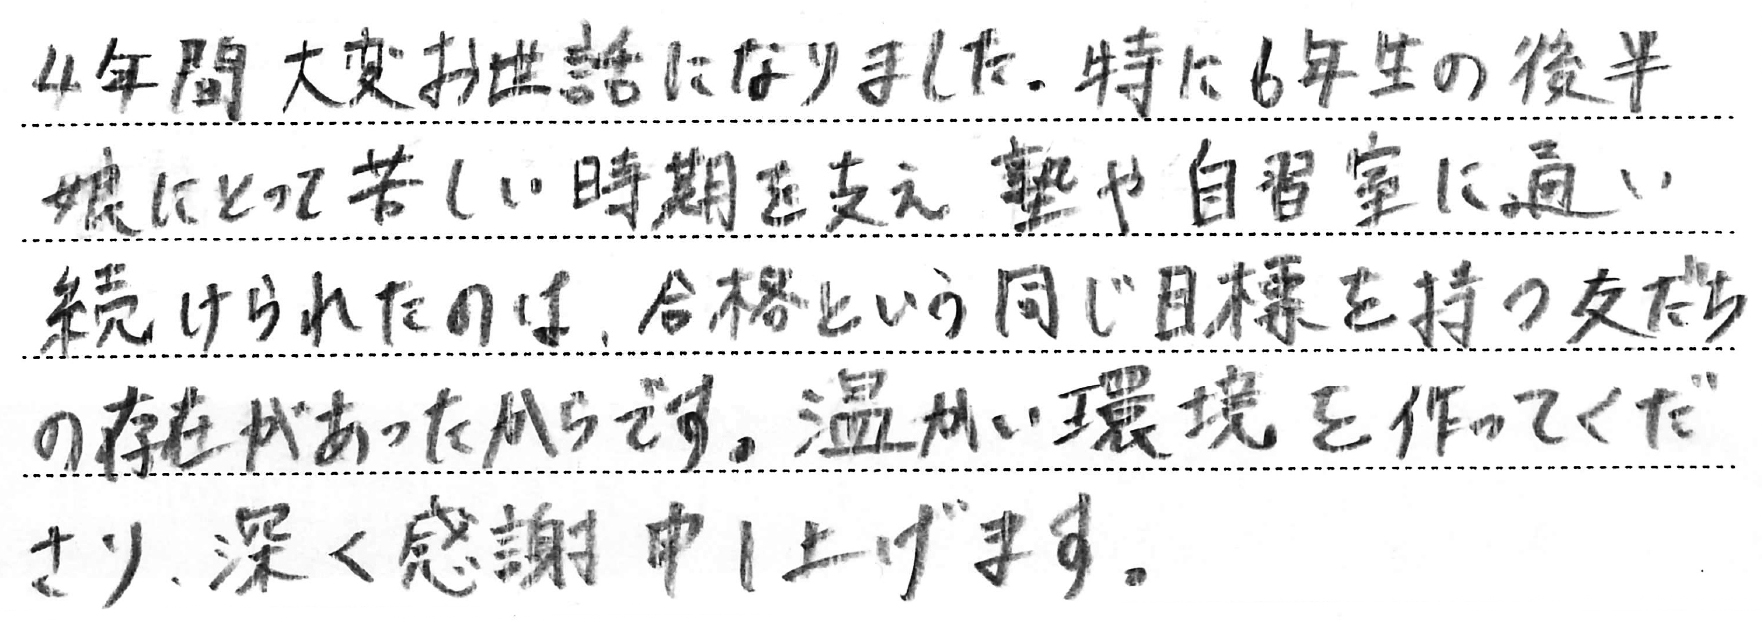 4年間大変お世話になりました。特に6年生の後半
娘にとって苦しい時期を支え塾や自習室に通い
続けられたのは、合格という同じ目標を持つ友だち
の存在があったからです。温かい環境を作ってくだ
さり、深く感謝申し上げます。